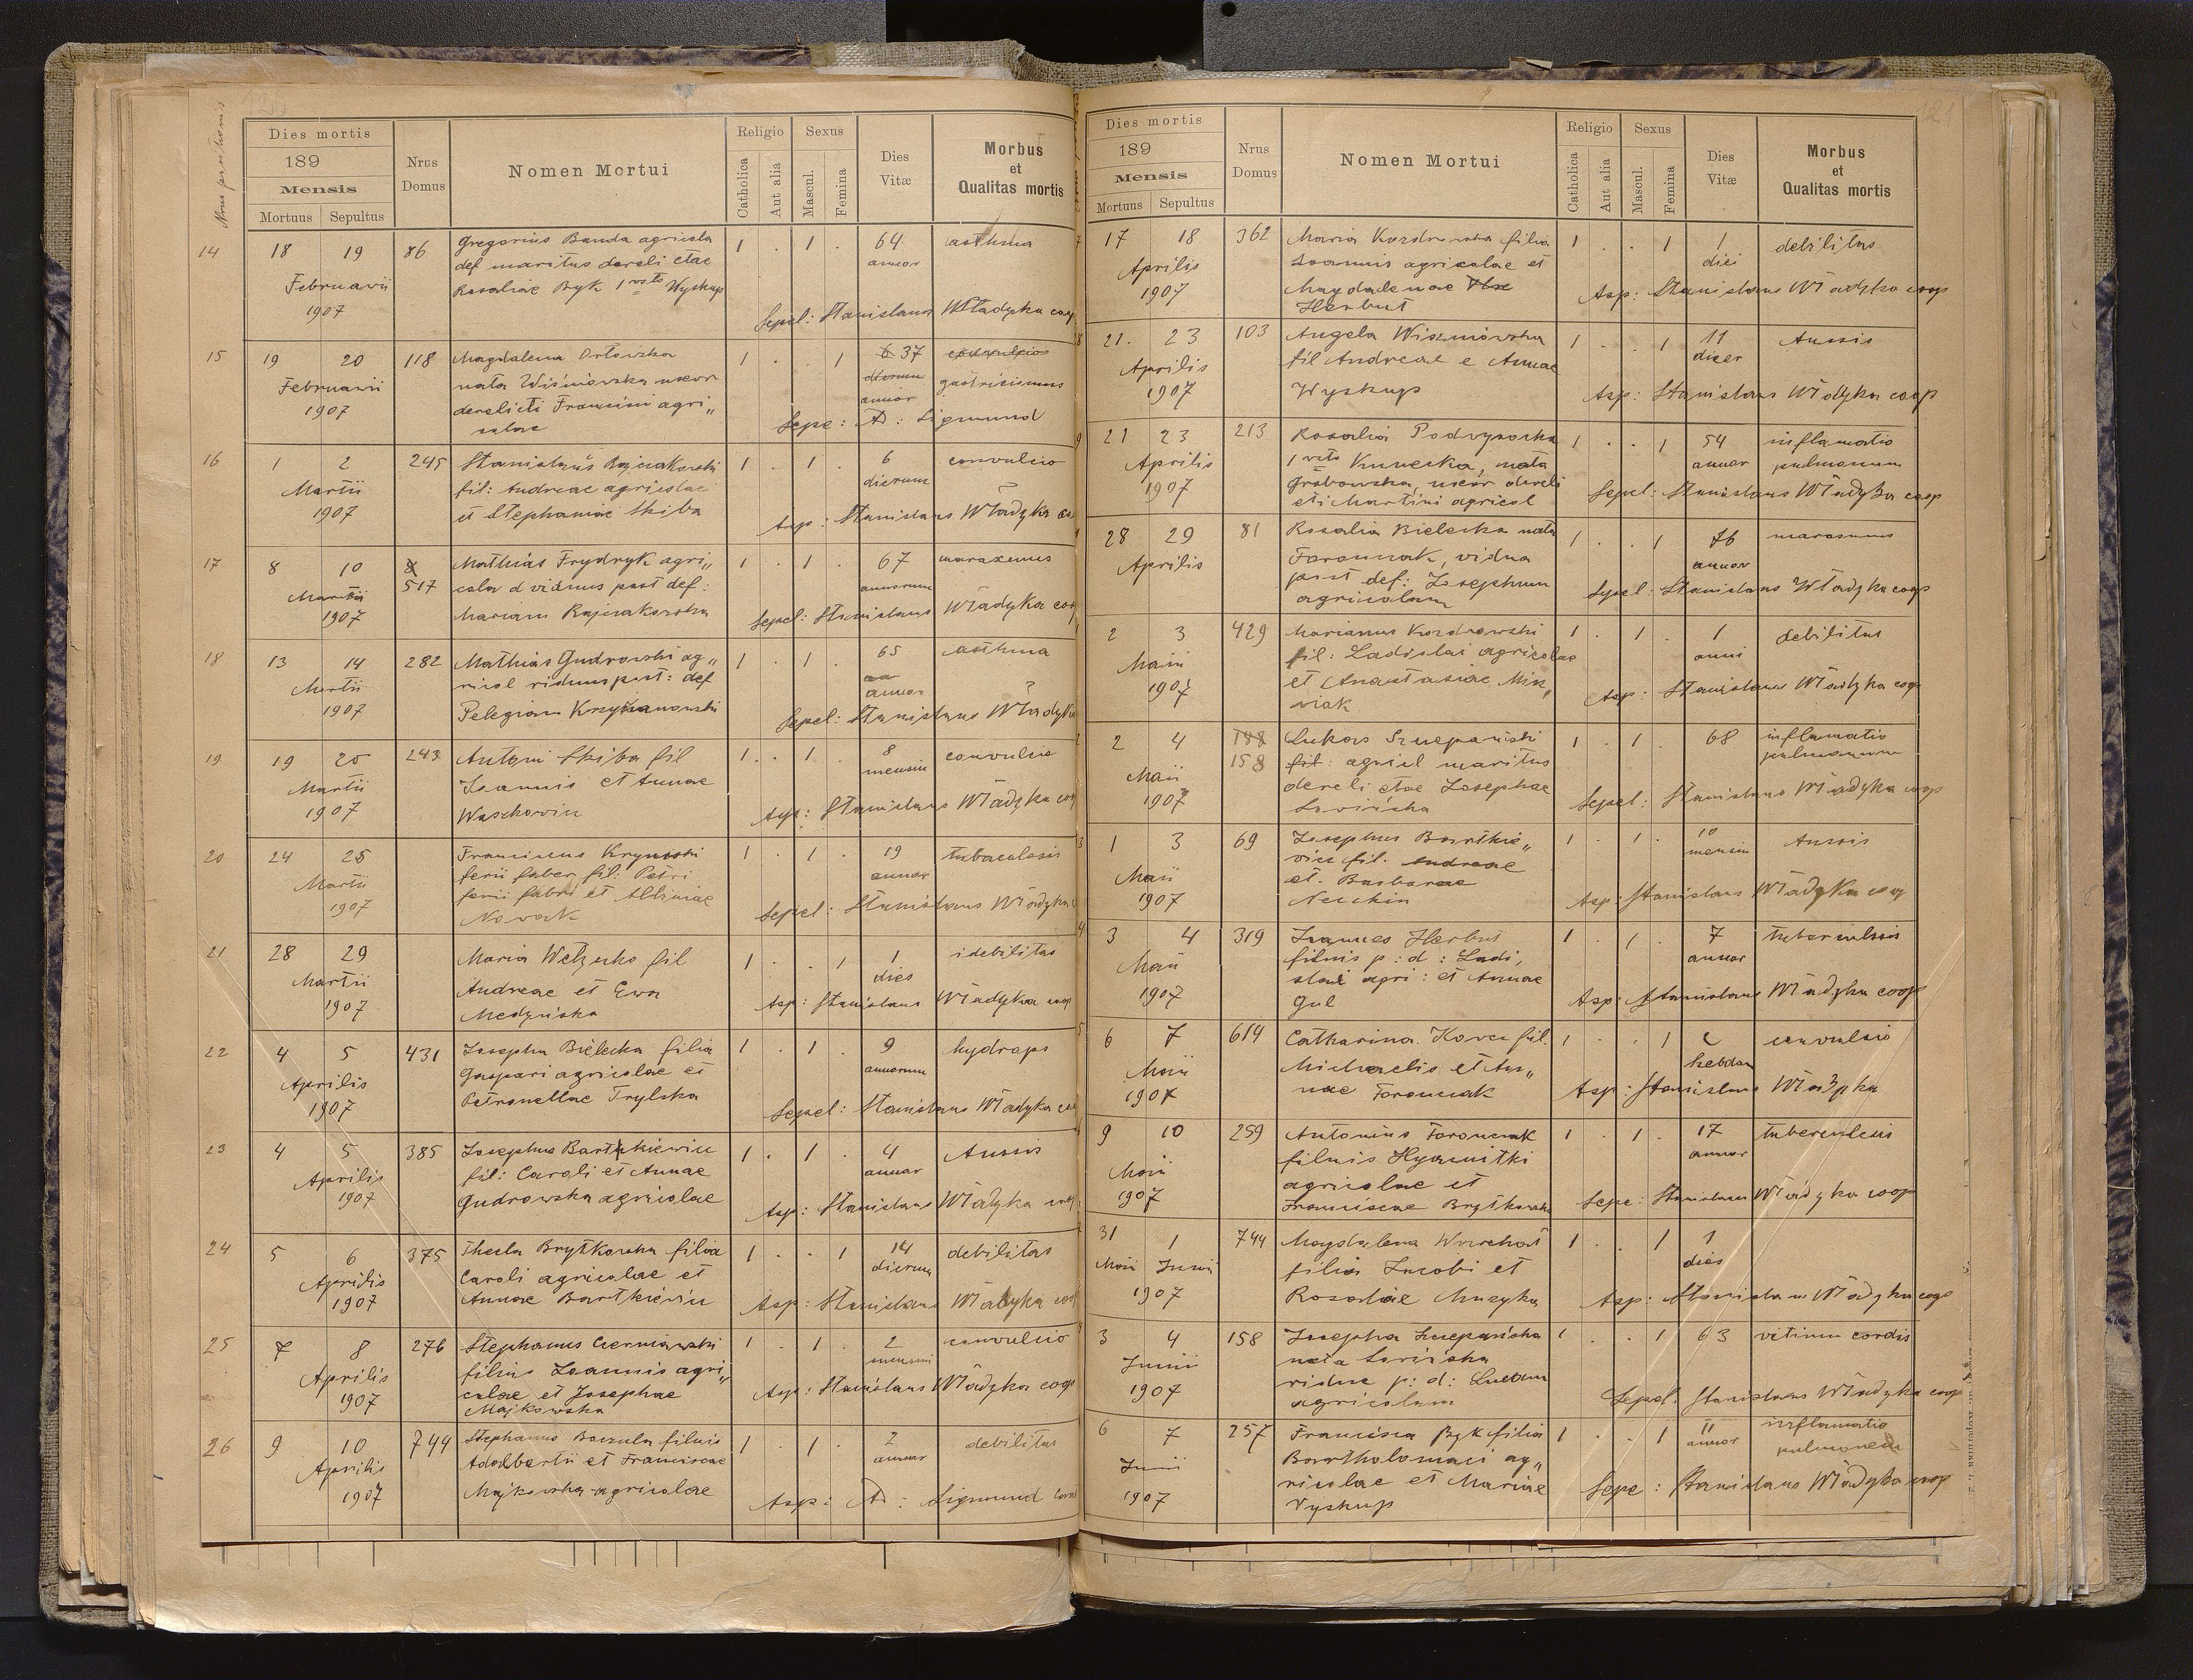 Dies mortis
189
Mensis
Mortuus Sepultus
Nrus Domus
Nomen Mortui
Religio
Catholica
Aut alia
Sexus
Mascul.
Femina
Dies Vitæ
Morbus et Qualitas mortis
14 18 19 86 Gregorius Banda agricola 1 . 1 . 64 asthma
def maritus dereli ctae annor
Februarii Rosaliae Byk 1 voto Wyskup
1907
Sepel: Stanislaus Władyka coop
15 19 20 118 Magdalena Orłowska 1 . 1 37
Februarii nata Wiśniowska uxor dierum gastricismus
1907 derelicti Francisci agri„ annor
colae Sepe: A: Sigmund
16 1 2 245 Stanislaus Bajcakowski 1 . 1 . 6 convulcio
Martii fil: Andreae agricolae dierum
1907 et Stephaniae Skiba
Asp: Stanislaus Władyka
17 8 10 8 Mathias Frydryk agri„ 1 . 1 . 67
Martii 517 cola d viduus post def: annorum
1907 Mariam Bajcakowska
Sepel: Stanislaus Władyka coo
18 13 14 282 Mathias Gudrowski ag„ 1 . 1 . 65 asthma
Martii ricol viduus post: def annor
1907 Pelegiam
Sepel: Stanislaus Władyka
19 19 20 243 Antoni Skiba fil 1 . 1 . 8 convulcio
Martii Ioannis et Annae mensiu
1907
Asp: Stanislaus Władyka coop
20 24 25 Franciscus 1 . 1 . 19
Martii ferii faber fil: Petri annor
1907 ferii fabri et
Nowak Sepel: Stanislaus Władyka
21 28 29 Maria fil 1 . . 1 1
Martii Andreae et Ewa dies
1907 Medyńska
Asp: Stanislaus Władyka coop
22 4 5 431 Josepha Bielecka filia 1 . 1 . 9 hydrops
Aprilis Gaspari agricolae et annorum
1907 Petronellae Trylska
Sepel: Stanislaus Władyka
23 4 5 385 Josephus Bartkiewicz 1 . 1 . 4 Tussis
Aprilis fil: Caroli et Annae annor
1907 Gudrowska agricolae
Asp: Stanislaus Władyka
24 5 6 375 Thecla Brytkowska filia 1 . . 1 14 debilitas
Aprilis Caroli agricolae et dierum
1907 Annae Bartkiewicz
Asp: Stanislaus Władyka
25 7 8 276 Stephanus Czerniawski 1 . 1 . 2 convulcio
Aprilis filius Ioannis agri„
1907 colae et Josephae
Majkowska Asp: Stanislaus Władyka coop
26 9 10 744 Stephanus filius 1 . 1 . 2 debilitas
Aprilis Adalbertii et Franciscae annor
1907 Majkowska agricolae
Asp: A: Sigmund
Dies mortis
189
Mensis
Mortuus Sepultus
Nrus Domus
Nomen Mortui
Religio
Catholica
Aut alia
Sexus
Mascul.
Femina
Dies Vitæ
Morbus et Qualitas mortis
17 18 362 Maria filia 1 . . 1 1 debilitas
Aprilis Ioannis agricolae et diei
1907 Magdalenae
Herbut Asp: Stanislaus Władyka coop
21. 23 103 Angela Wiszniowska 1 . . 1 11 Tussis
Aprilis fil Andreae e Annae dier
1907 Wyskup
Asp: Stanislaus Władyka coop
21 23 213 Rosalia Podvysocka 1 . . 1 54 inflamatio
Aprilis 1 voto Kunecka, nata annor pulmonum
1907 Grabowska, uxor dereli
cti Martini agricol Sepel: Stanislaus Władyka coop
28 29 81 Rosalia Bielecka nata 1 . . 1 76 marasmus
Aprilis vidua annor
post def: Josephum
agricolam Sepel: Stanislaus Władyka coop
2 3 429 Marianus Kozdrowski 1 . 1 . 1 debilitas
Maii fil: Ladislai agricolae anni
1907 et Anastasiae
Asp: Stanislaus Władyka coop
2 4 188 Lukas Szczepański 1 . 1 . 68 inflamatio
158 fil: agricol maritus pulmonum
Maii dereli ctae Josephae
1907 Sepel: Stanislaus Władyka coop
1 3 69 Josephus Bartkie„ 1 . 1 . 10 Tussis
vicz fil. Andreae mensiu
Maii et Barbarae
1907 Asp: Stanislaus Władyka coop
3 4 319 Joannes Herbut 1 . 1 . 7
Maii filius p: d: Ladi, annor
slai agri: et Annae
1907 Gul Asp: Stanislaus Władyka coop
6 7 614 Catharina fil. 1 . . 1 convulcio
Maii Michaelis et An„ hebdom
1907 nae Asp: Stanislaus Władyka
9 10 259 Antonius 1 . 1 . 17
Maii filius annor
1907 agricolae et
Franciscae Brytkowska Sepe: Stanislaus Władyka coop
31 1 744 Magdalena 1 . . 1 1
Maii Junii filia Jacobi et dies
1907 Rosaliae
Asp: Stanislaus Władyka coop
3 4 158 Josepha Szczepańska 1 . . 1 63 vitium cordis
Junii nata
1907 vidua p: d: Lucam
agricolam Sepel. Stanislaus Władyka coop
6 7 257 Francisca Byk filia 1 . . 1 11 inflamatio
Junii Bartholomaei ag„ annor pulmonem
1907 ricolae et Mariae
Vyskup Sepe: Stanislaus Władyka coop